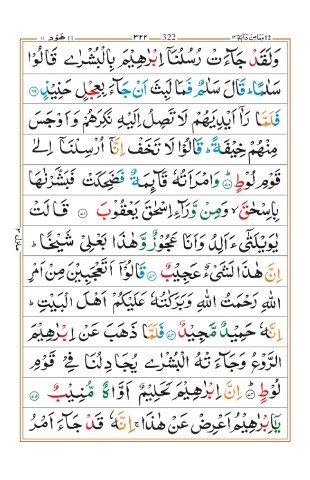 وما من دآبة ١٢ ٣٢٢ 322 هود ١١
وَلَقَدْ جَآءَتْ رُسُلُنَآ اِبْرٰهِيْمَ بِالْبُشْرٰى قَالُوْا
سَلٰمًا ؕ قَالَ سَلٰمٌ فَمَا لَبِثَ اَنْ جَآءَ بِعِجْلٍ حَنِيْذٍ ﴿۶۹﴾
فَلَمَّا رَاٰۤ اَيْدِيَهُمْ لَا تَصِلُ اِلَيْهِ نَكِرَهُمْ وَاَوْجَسَ
مِنْهُمْ خِيْفَةً ؕ قَالُوْا لَا تَخَفْ اِنَّاۤ اُرْسِلْنَاۤ اِلٰى
قَوْمِ لُوْطٍ ؕ﴿۷۰﴾ وَامْرَاَتُهٗ قَآئِمَةٌ فَضَحِكَتْ فَبَشَّرْنٰهَا
بِاِسْحٰقَ ۙ وَمِنْ وَّرَآءِ اِسْحٰقَ يَعْقُوْبَ ﴿۷۱﴾ قَالَتْ
يٰوَيْلَتٰٓى ءَاَلِدُ وَاَنَا عَجُوْزٌ وَّهٰذَا بَعْلِيْ شَيْخًا ؕ
اِنَّ هٰذَا لَشَيْءٌ عَجِيْبٌ ﴿۷۲﴾ قَالُوْۤا اَتَعْجَبِيْنَ مِنْ اَمْرِ
اللّٰهِ رَحْمَتُ اللّٰهِ وَبَرَكٰتُهٗ عَلَيْكُمْ اَهْلَ الْبَيْتِ ؕ
اِنَّهٗ حَمِيْدٌ مَّجِيْدٌ ﴿۷۳﴾ فَلَمَّا ذَهَبَ عَنْ اِبْرٰهِيْمَ
الرَّوْعُ وَجَآءَتْهُ الْبُشْرٰى يُجَادِلُنَا فِيْ قَوْمِ
لُوْطٍ ؕ﴿۷۴﴾ اِنَّ اِبْرٰهِيْمَ لَحَلِيْمٌ اَوَّاهٌ مُّنِيْبٌ ﴿۷۵﴾
يٰۤاِبْرٰهِيْمُ اَعْرِضْ عَنْ هٰذَا ۚ اِنَّهٗ قَدْ جَآءَ اَمْرُ
منزل ٣